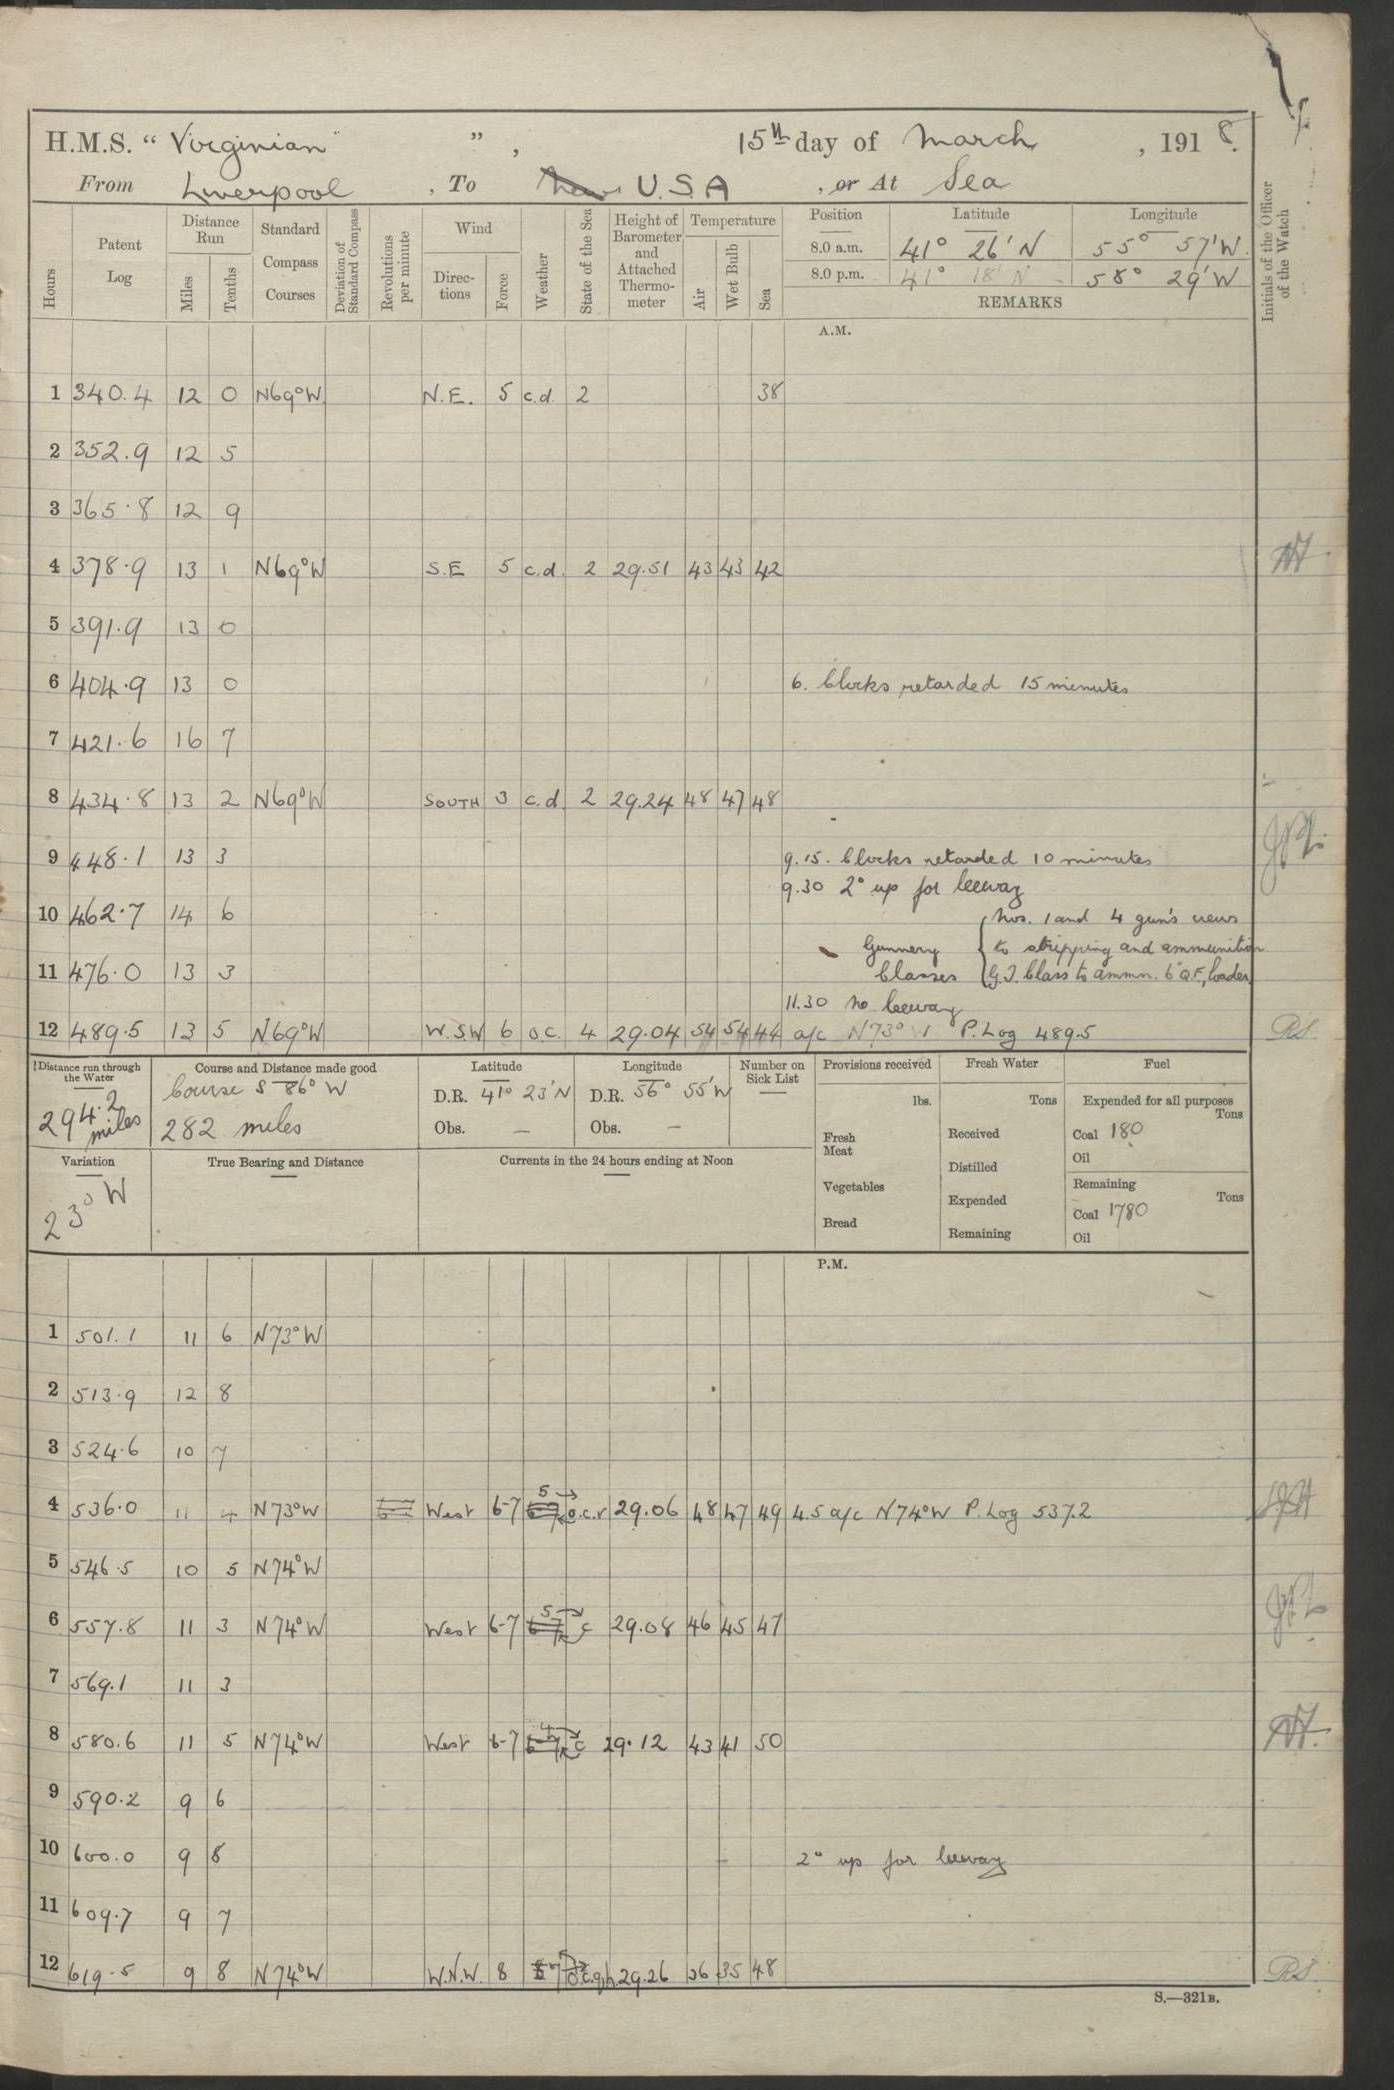 H.M.S. “ Virginian ”, 15th day of March, 1918.
From Liverpool, To U.S.A, or At Sea
Hours
Patent Log
Distance Run
Miles
Tenths
Standard Compass Courses
Deviation of Standard Compass
Revolutions per minute
Wind
Directions
Force
Weather
State of the Sea
Height of Barometer and Attached Thermometer
Temperature
Air
Wet Bulb
Sea
Position Latitude Longitude
8.0 a.m. 41° 26' N 55° 57' W.
8.0 p.m. 41° 18' N 58° 29' W
REMARKS
Initials of the Officer of the Watch
A.M.
1 340.4 12 0 N69°W N.E. 5 c.d. 2 38
2 352.9 12 5
3 365.8 12 9
4 378.9 13 1 N69°W S.E 5 c.d. 2 29.51 43 43 42
5 391.9 13 0
6 404.9 13 0 6. Clocks retarded 15 minutes
7 421.6 16 7
8 434.8 13 2 N69°W SOUTH 3 c.d. 2 29.24 48 47 48
9 448.1 13 3 9.15. Clocks retarded 10 minutes
9.30 2° up for leeway
10 462.7 14 6 Nos. 1 and 4 gun's crews
Gunnery to stripping and ammunition
11 476.0 13 3 Classes G.I. Class to ammn. 6" Q.F, loader
11.30 No leeway
12 489.5 13 5 N69°W W.SW 6 o.c. 4 29.04 54 54 44 a/c N73°W P.Log 489.5 RS
Distance run through the Water
294.2 miles
Course and Distance made good
Course S 86° W
282 miles
Latitude
D.R. 41° 23' N
Obs. —
Longitude
D.R. 56° 55' W
Obs. —
Number on Sick List
—
Provisions received
lbs.
Fresh Meat
Vegetables
Bread
Fresh Water
Tons
Received
Distilled
Expended
Remaining
Fuel
Expended for all purposes
Tons
Coal 180
Oil
Remaining
Tons
Coal 1780
Oil
Variation
23° W
True Bearing and Distance
Currents in the 24 hours ending at Noon
P.M.
1 501.1 11 6 N73°W
2 513.9 12 8
3 524.6 10 7
4 536.0 11 4 N73°W West 6-7 5 o.c.r 29.06 48 47 49 4.5 a/c N74°W P.Log 537.2
5 546.5 10 5 N74°W
6 557.8 11 3 N74°W West 6-7 5 c 29.08 46 45 47
7 569.1 11 3
8 580.6 11 5 N74°W West 6-7 4 c 29.12 43 41 50
9 590.2 9 6
10 600.0 9 8 2° up for leeway
11 609.7 9 7
12 619.5 9 8 N74°W W.N.W. 8 29.26 36 35 48 RS
S.—321B.